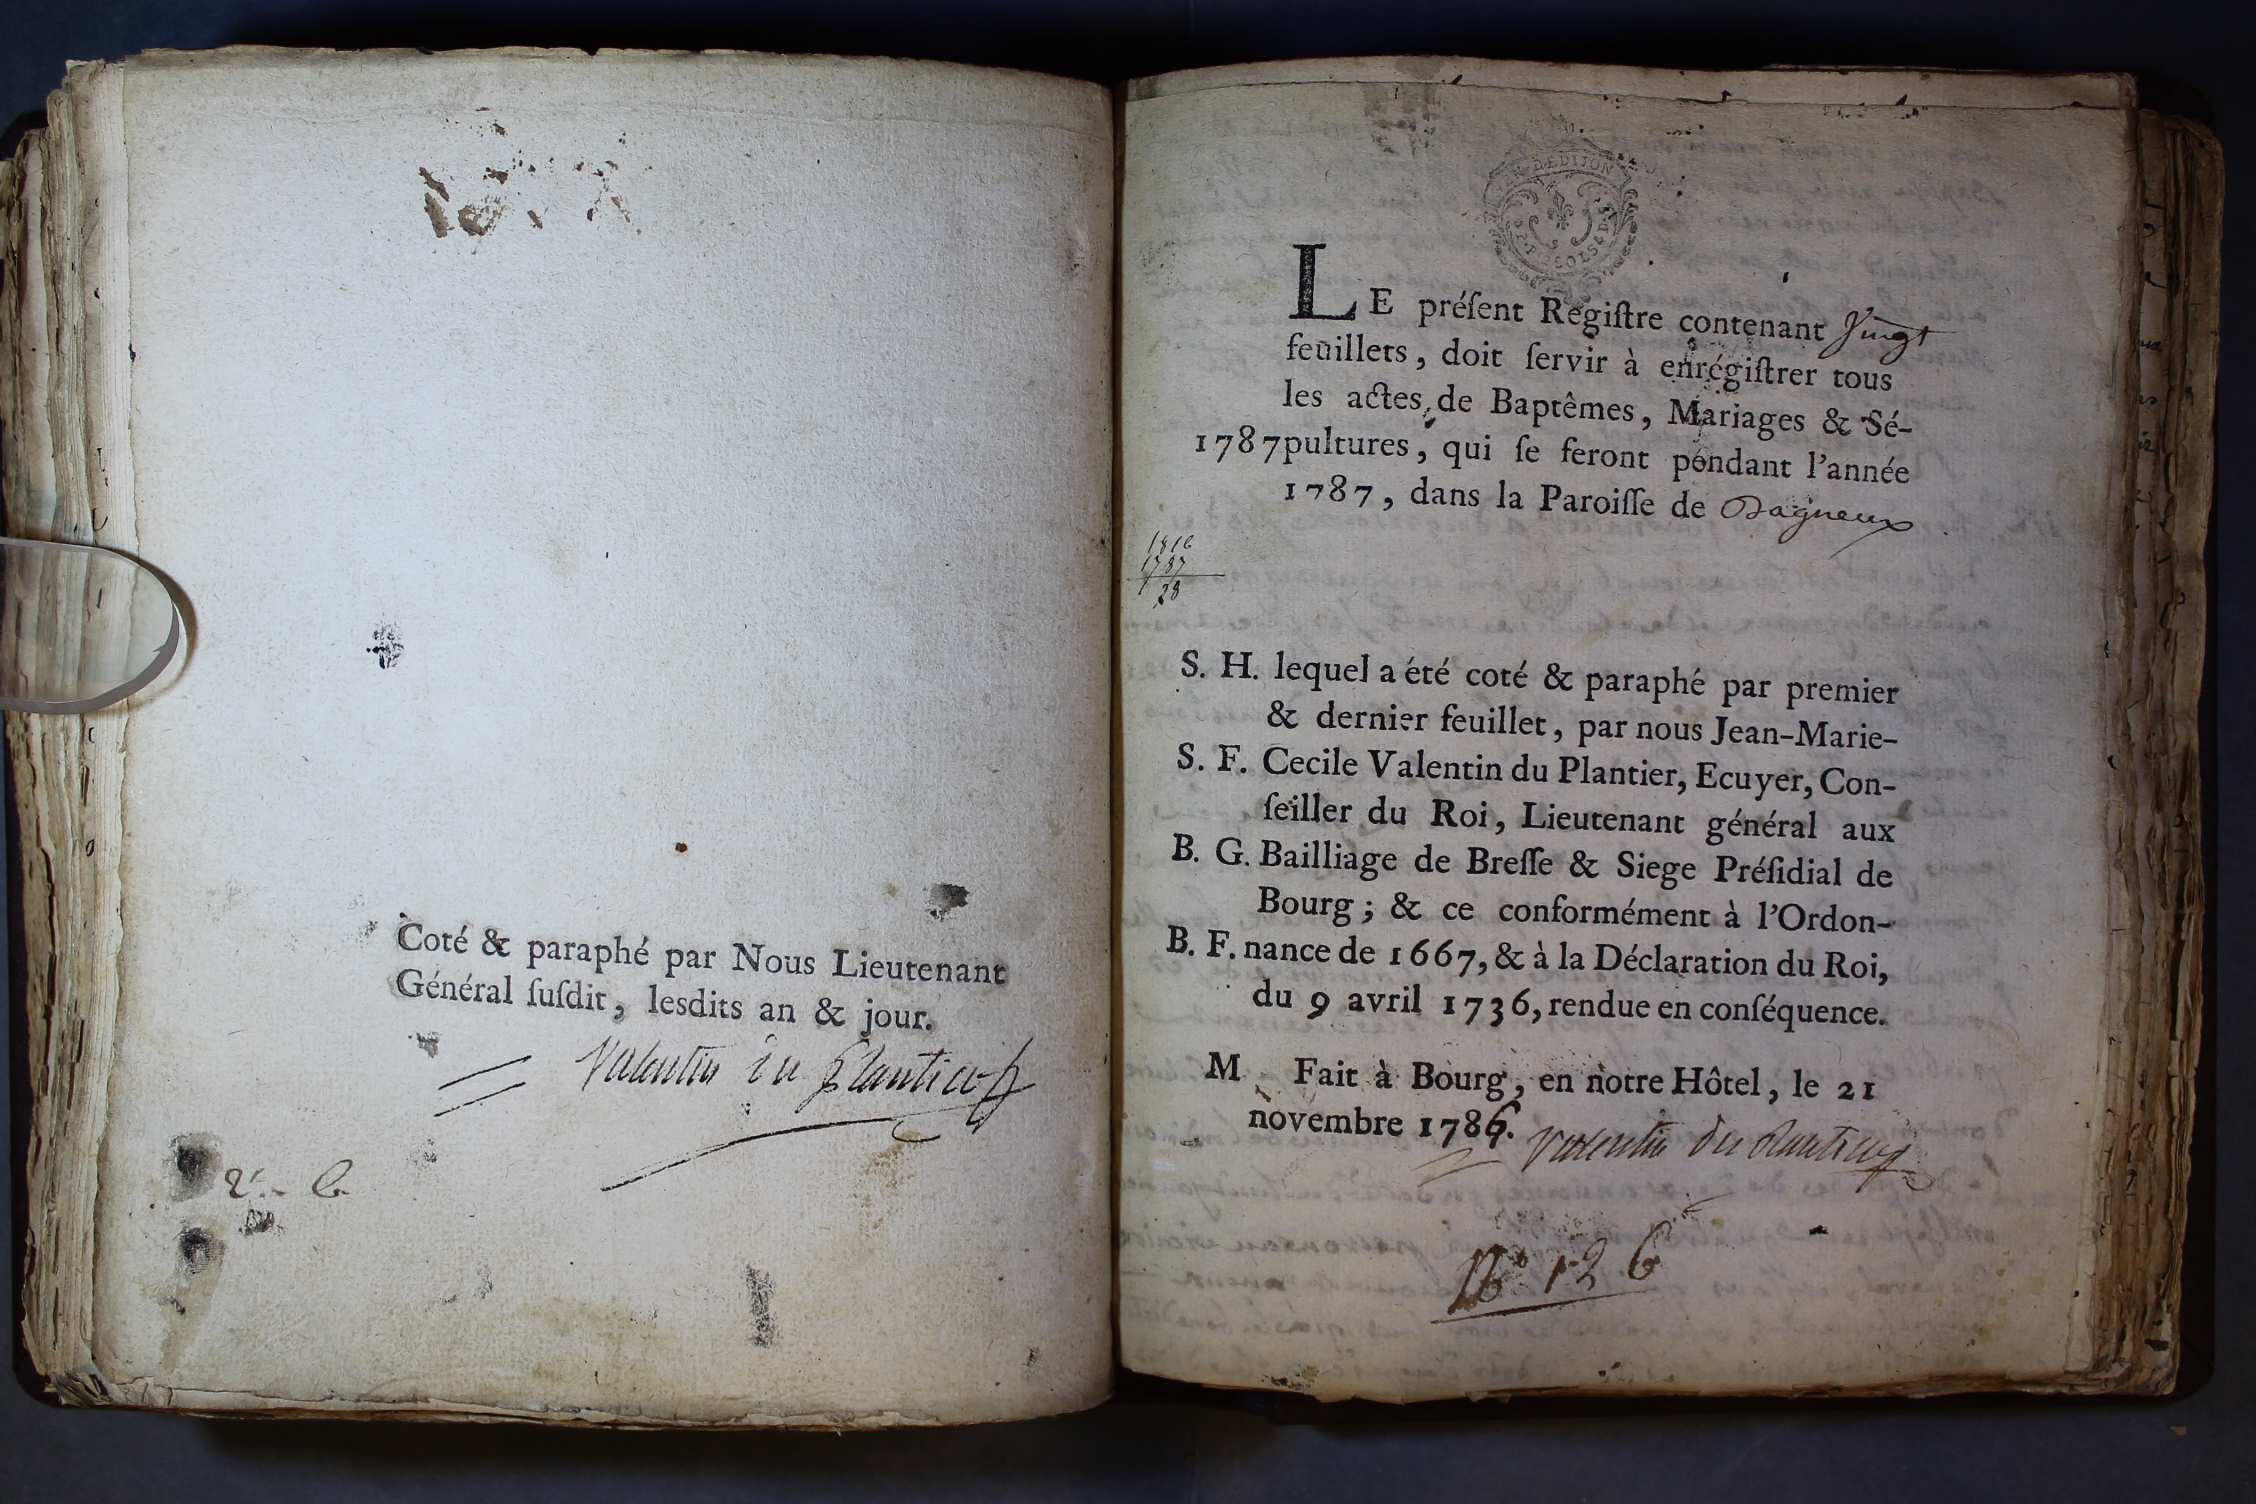 Coté & paraphé par Nous Lieutenant
Général suſdit, lesdits an & jour.
Valentin du Plantier
DEDIJON
LE préſent Regiſtre contenant Vingt
feuillets, doit ſervir à enrégiſtrer tous
les actes de Baptêmes, Mariages & Sé-
1787 pultures, qui ſe feront pendant l'année
1787, dans la Paroiſſe de Dagneux
1816
1787
28
S. H. lequel a été coté & paraphé par premier
& dernier feuillet, par nous Jean-Marie-
S. F. Cecile Valentin du Plantier, Ecuyer, Con-
ſeiller du Roi, Lieutenant général aux
B. G. Bailliage de Breſſe & Siege Préſidial de
Bourg ; & ce conformément à l'Ordon-
B. F. nance de 1667, & à la Déclaration du Roi,
du 9 avril 1736, rendue en conſéquence.
M Fait à Bourg, en notre Hôtel, le 21
novembre 1786.
Valentin du Plantier
No 126